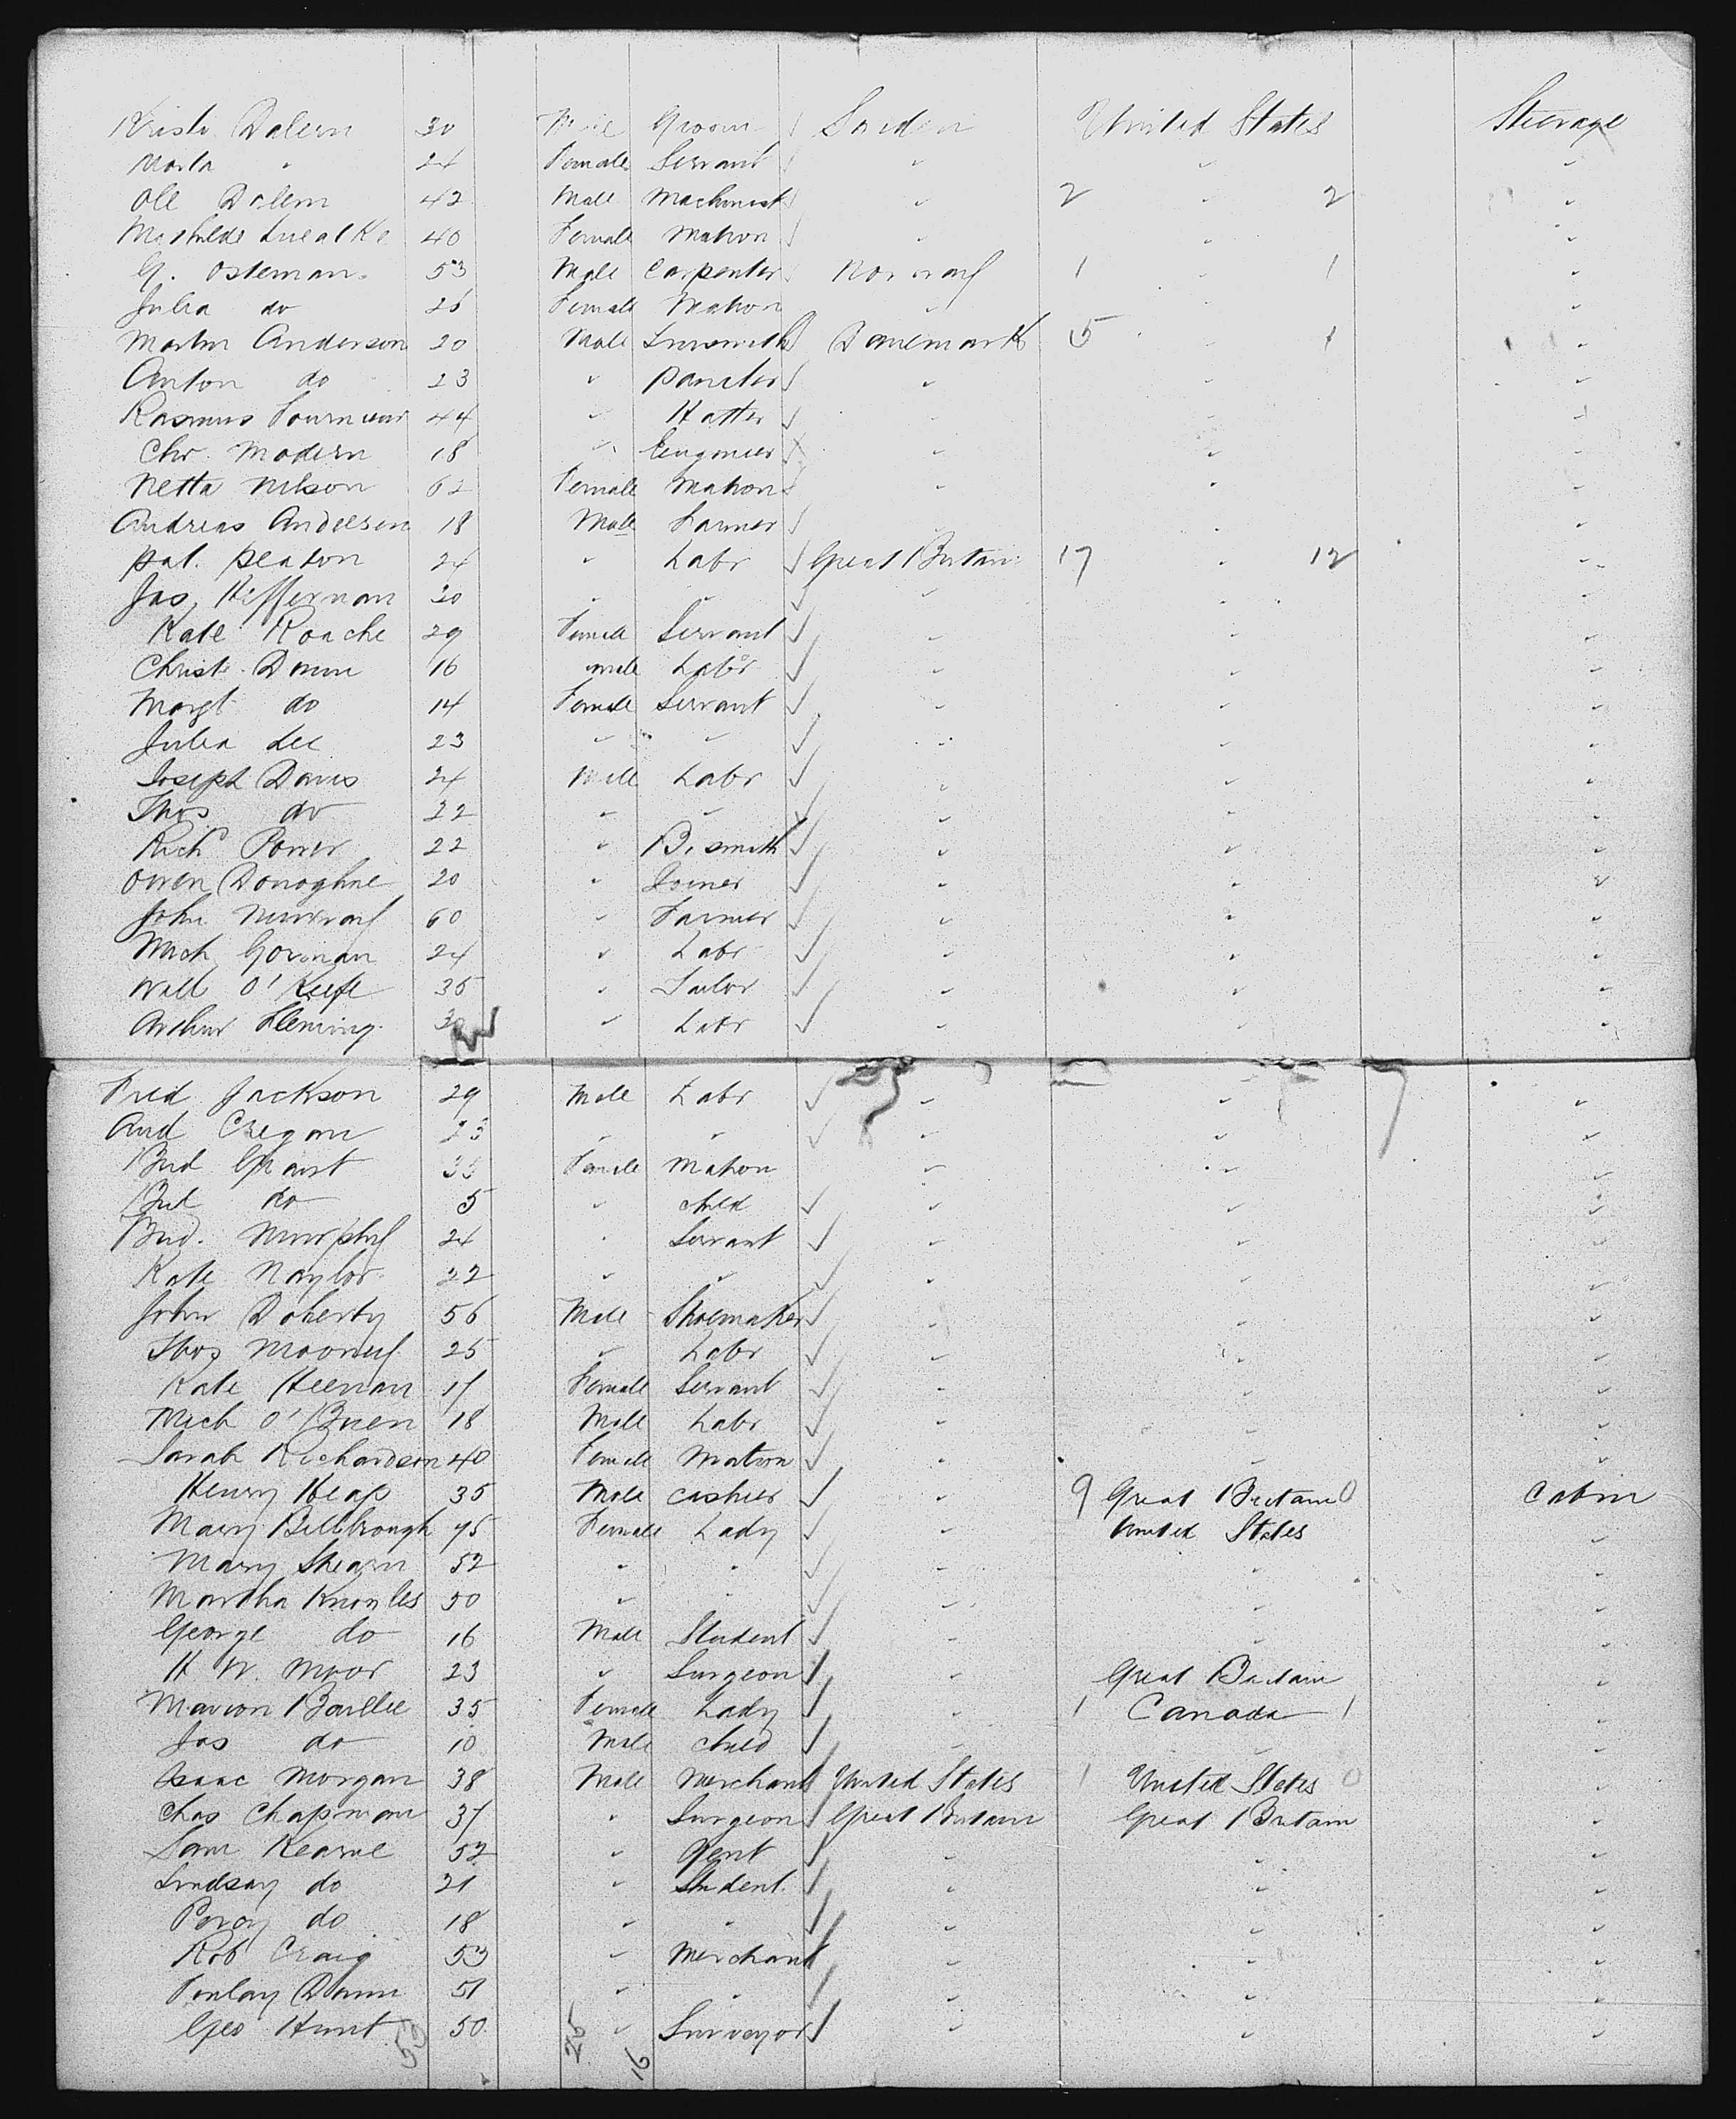 Kristi Dalern 30 Male Groom Sweden United States Steerage
Marta " 24 Female Servant " " "
Ole Dalern 42 Male Machinist " 2 " 2 "
Mathilde 40 Female Matron " " "
G. Osteman 53 Male Carpenter Norway 1 " 1 "
Julia do 26 Female Matron " " "
Martin Anderson 20 Male Denemark 5 " 1 "
Anton do 23 " Painter " " "
Rasmus 44 " Hatter " " "
Chr. Modern 18 " Eengineer " " "
Netta Nilson 62 Female Matron " " "
Andreas Andersen 18 Male Farmer " " "
Pat. Peaton 24 " Labr Great Britain 17 " 12 "
Jas. Heffernan 20 " " " " "
Kate Roache 29 Female Servant " " "
Christ. Dunn 16 male Labr " " "
Margt do 14 Female Servant " " "
Julia Lee 23 " " " " "
Joseph Davis 24 Male Labr " " "
Thos do 22 " " " " "
Rich Power 22 " B. smith " " "
Owen Donoghue 20 " Joiner " " "
John Murray 60 " Farmer " " "
Mich Gorman 24 " Labr " " "
Will O'Keefe 35 " Tailor " " "
Arthur Fleming 30 " Labr " " "
Fred Jackson 29 Male Labr " " "
And Cregan 23 " " " " "
Brid Grant 33 Female Matron " " "
do 5 " child " " "
Brid. Murphy 24 " Servant " " "
Kate Naylor 22 " " " " "
John Doherty 56 Male Shoemaker " " "
Thos Mooney 25 " Labr " " "
Kate Heenan 17 Female Servant " " "
Mich O'Brien 18 Male Labr " " "
Sarah Richardson 40 Female Matron " " "
Henry Heap 35 Male Cashier " 9 Great Britain 0 Cabin
Mary Billbrough 45 Female Lady " United States "
Mary Shearn 52 " " " " "
Martha Knowles 50 " " " " "
George do 16 Male Student " " "
H W. Moor 23 " Surgeon " Great Britain
Marion Baillie 35 Female Lady " 1 Canada 1 "
Jas do 10 Male child " " "
Isaac Morgan 38 Male Merchant United States 1 United States 0 "
Chas Chapman 37 " Surgeon Great Britain Great Britain "
Sam Kearne 52 " Gent " " "
Lindsay do 21 " Student " " "
Percy do 18 " " " " "
Rob Craig 53 " Merchant " " "
Finlay Dunn 51 " " " " "
Geo Hunt 50 " Surveyor " " "
53 16